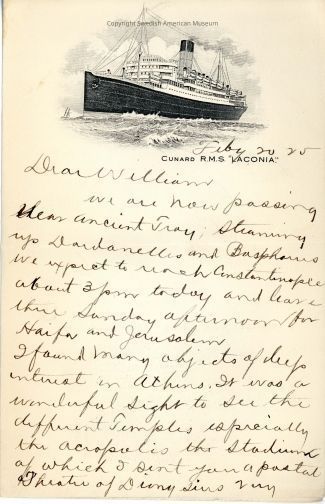 Copyright Swedish American Museum
Feby 20 25
CUNARD R.M.S. "LACONIA."
Dear William
we are now passing
near ancient Troy; Steaming
up Dardanelles and Bosphorus
We expect to reach Constantinople
about 3 pm today and leave
there Sunday afternoon for
Haifa and Jerusalem
I found many objects of deep
interest in Athens. It was a
wonderful sight to see the
different Temples especially
the acropolis the Stadium
of which I sent you a postal
Theatre of Dionysius very